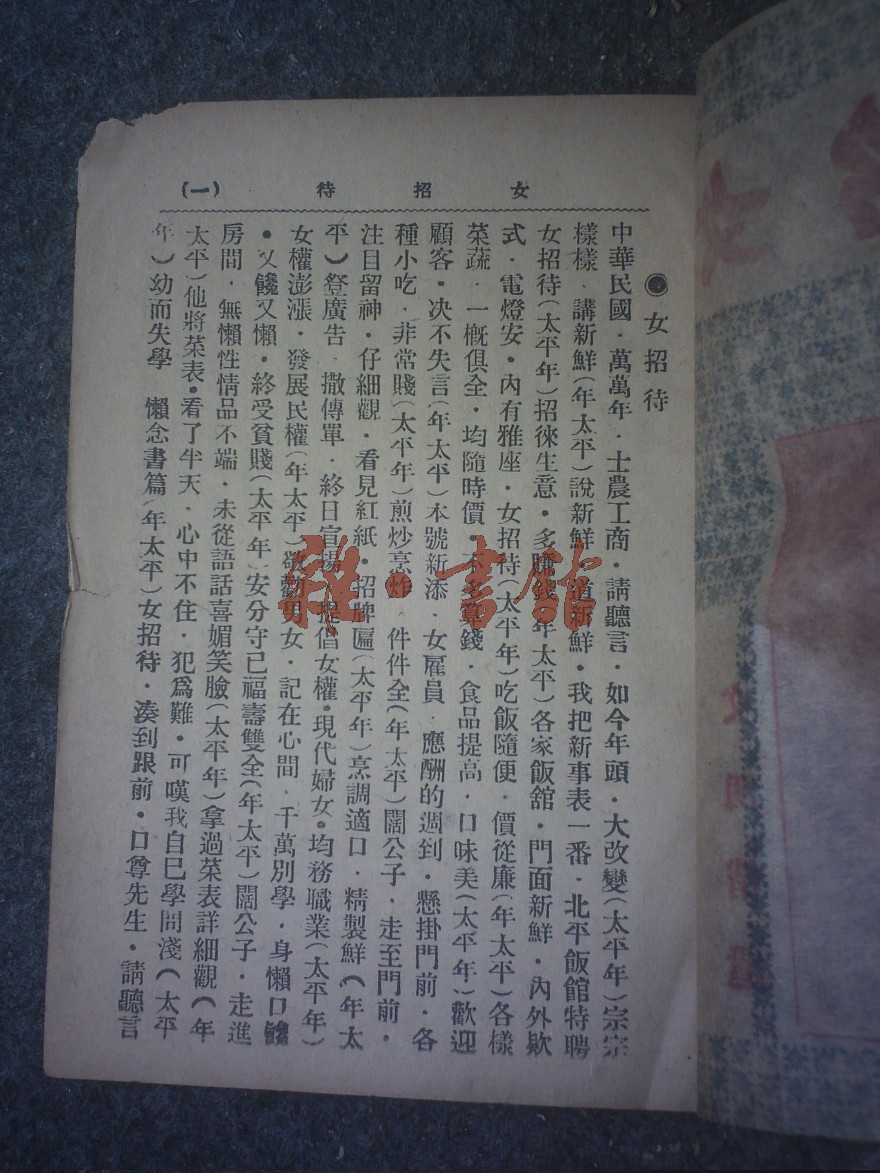 女招待 (一)
◉女招待
中華民國．萬萬年．士農工商．請聽言．如今年頭．大改變(太平年)宗宗
樣樣．講新鮮(年太平)說新鮮．道新鮮．我把新事表一番．北平飯館特聘
女招待(太平年)招徠生意．多賺錢(年太平)各家飯舘．門面新鮮．內外欵
式．電燈安．內有雅座．女招待(太平年)吃飯隨便．價從廉(年太平)各樣
菜蔬．一概俱全．均隨時價．不多覓錢．食品提高．口味美(太平年)歡迎
顧客．决不失言(年太平)本號新添．女雇員．應酬的週到．懸掛門前．各
種小吃．非常賤(太平年)煎炒烹炸．件件全(年太平)闊公子．走至門前．
注目留神．仔細觀．看見紅紙．招牌匾(太平年)烹調適口．精製鮮(年太
平)登廣告．撒傳單．終日宣揚．提倡女權．現代婦女．均務職業(太平年)
女權澎漲．發展民權(年太平)敬勸男女．記在心間．千萬別學．身懶口饞
．又饞又懶．終受貧賤(太平年)安分守己福壽雙全(年太平)闊公子．走進
房間．無懶性情品不端．未從語話喜媚笑臉(太平年)拿過菜表詳細觀(年
太平)他將菜表．看了半天．心中不住．犯爲難．可嘆我自已學問淺(太平
年)幼而失學．懶念書篇(年太平)女招待．湊到跟前．口尊先生．請聽言
雅·書舘